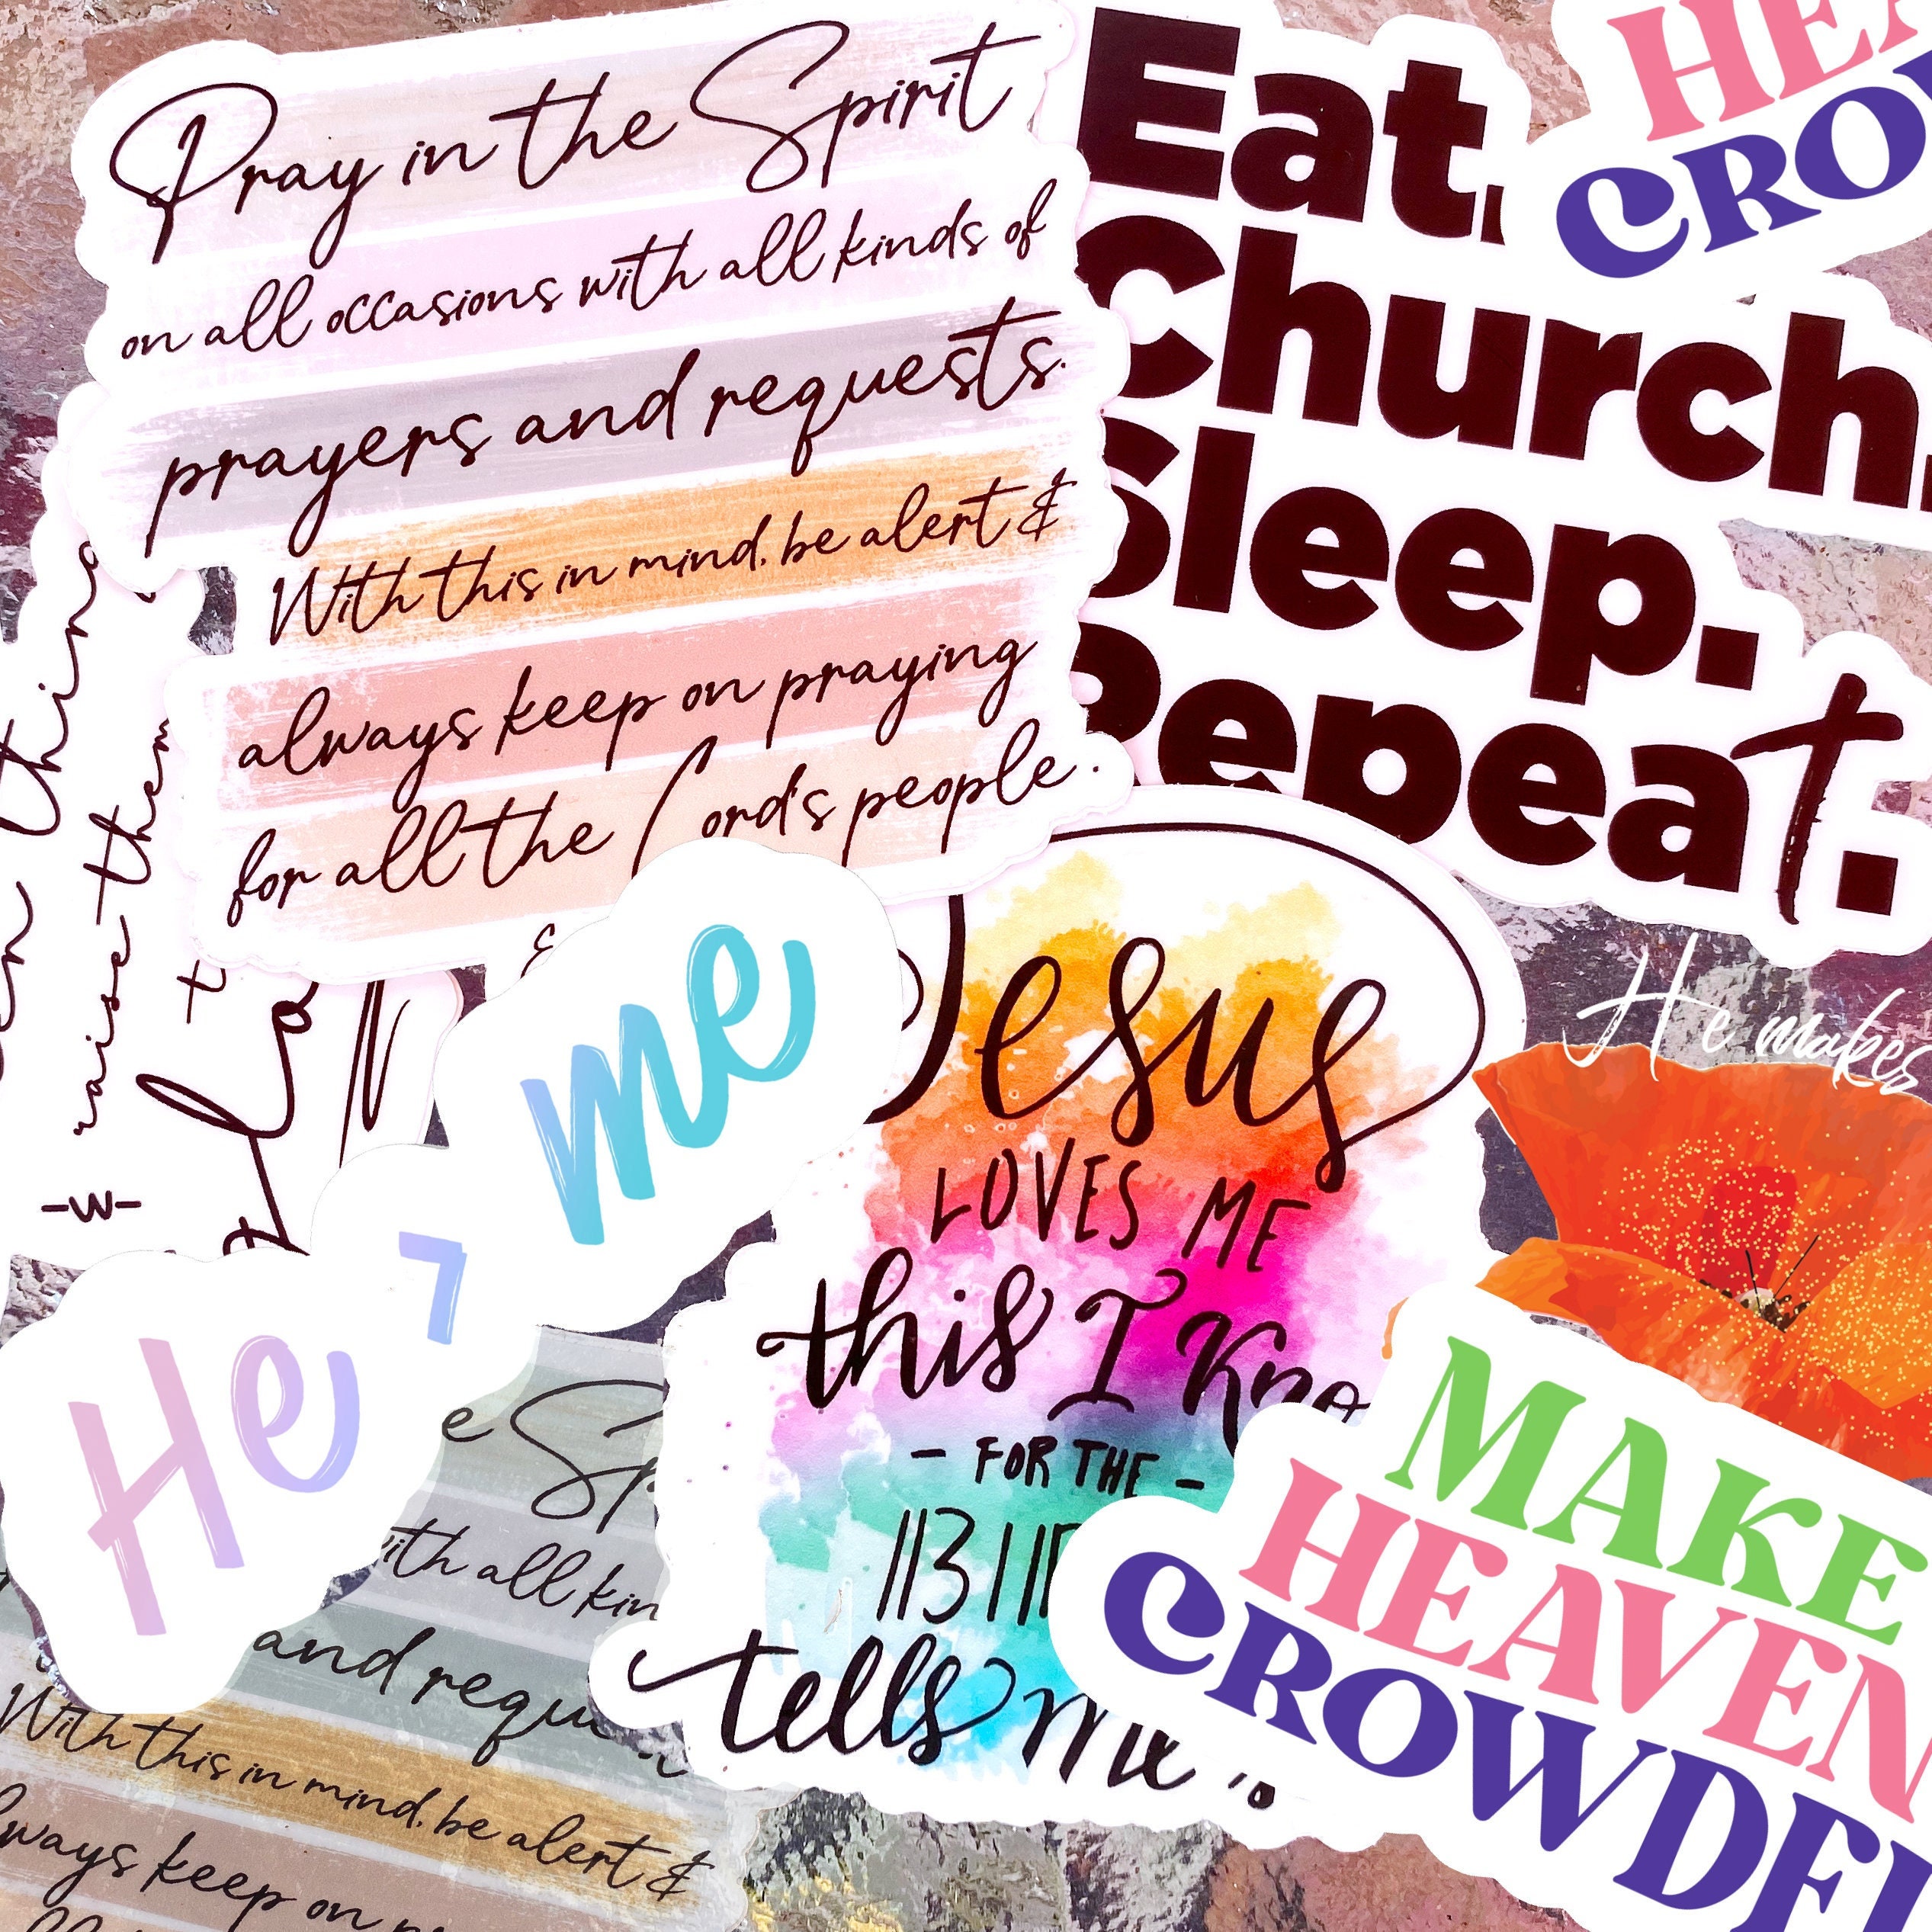 Pray in the Spirit
on all occasions with all kinds of
prayers and requests.
With this in mind, be alert &
always keep on praying
for all the Lord's people.
Eat.
Church.
Sleep.
Repeat.
HEA
CRO
thing
raise them
-W-
He > me
Jesus
LOVES ME
this I Kno
- FOR THE -
tells me.
He makes
MAKE
HEAVEN
CROWDE
e Sp
ith all kin
and requ
With this in mind, be alert &
lways keep on